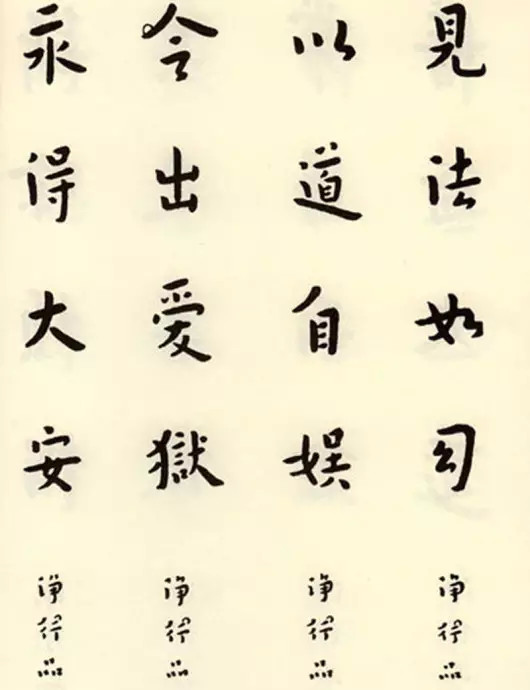 見法如幻
淨行品
以道自娛
淨行品
令出愛獄
淨行品
永得大安
淨行品